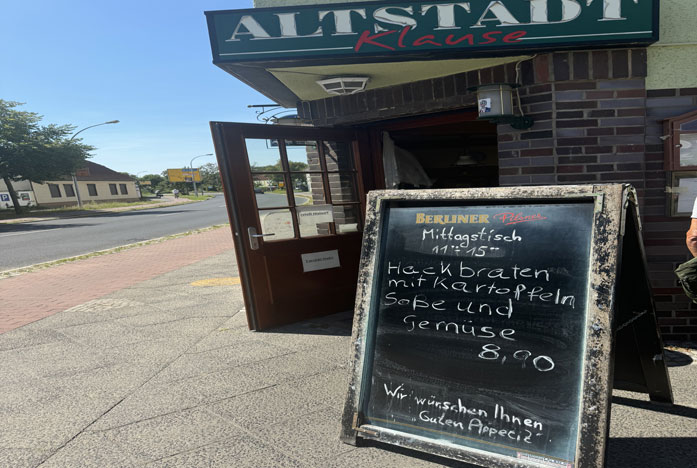 ALTSTADT
Klause
BERLINER Pilsner
Mittagstisch
11⁰⁰-15⁰⁰
Hackbraten
mit Kartoffeln
Soße und
Gemüse
8,90
Wir wünschen Ihnen
„Guten Appeciz"